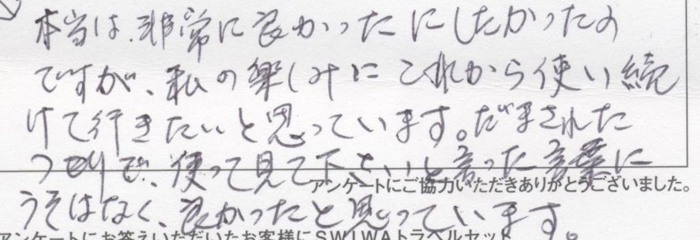 本当は、非常に良かったにしたかったの
ですが、私の楽しみにこれから使い続
けて行きたいと思っています。だまされた
つもりで、使って見て下さいと言った言葉に
アンケートにご協力いただきありがとうございました。
うそはなく、良かったと思っています。
アンケートにお答えいただいたお客様にSWIWAトラベルセット